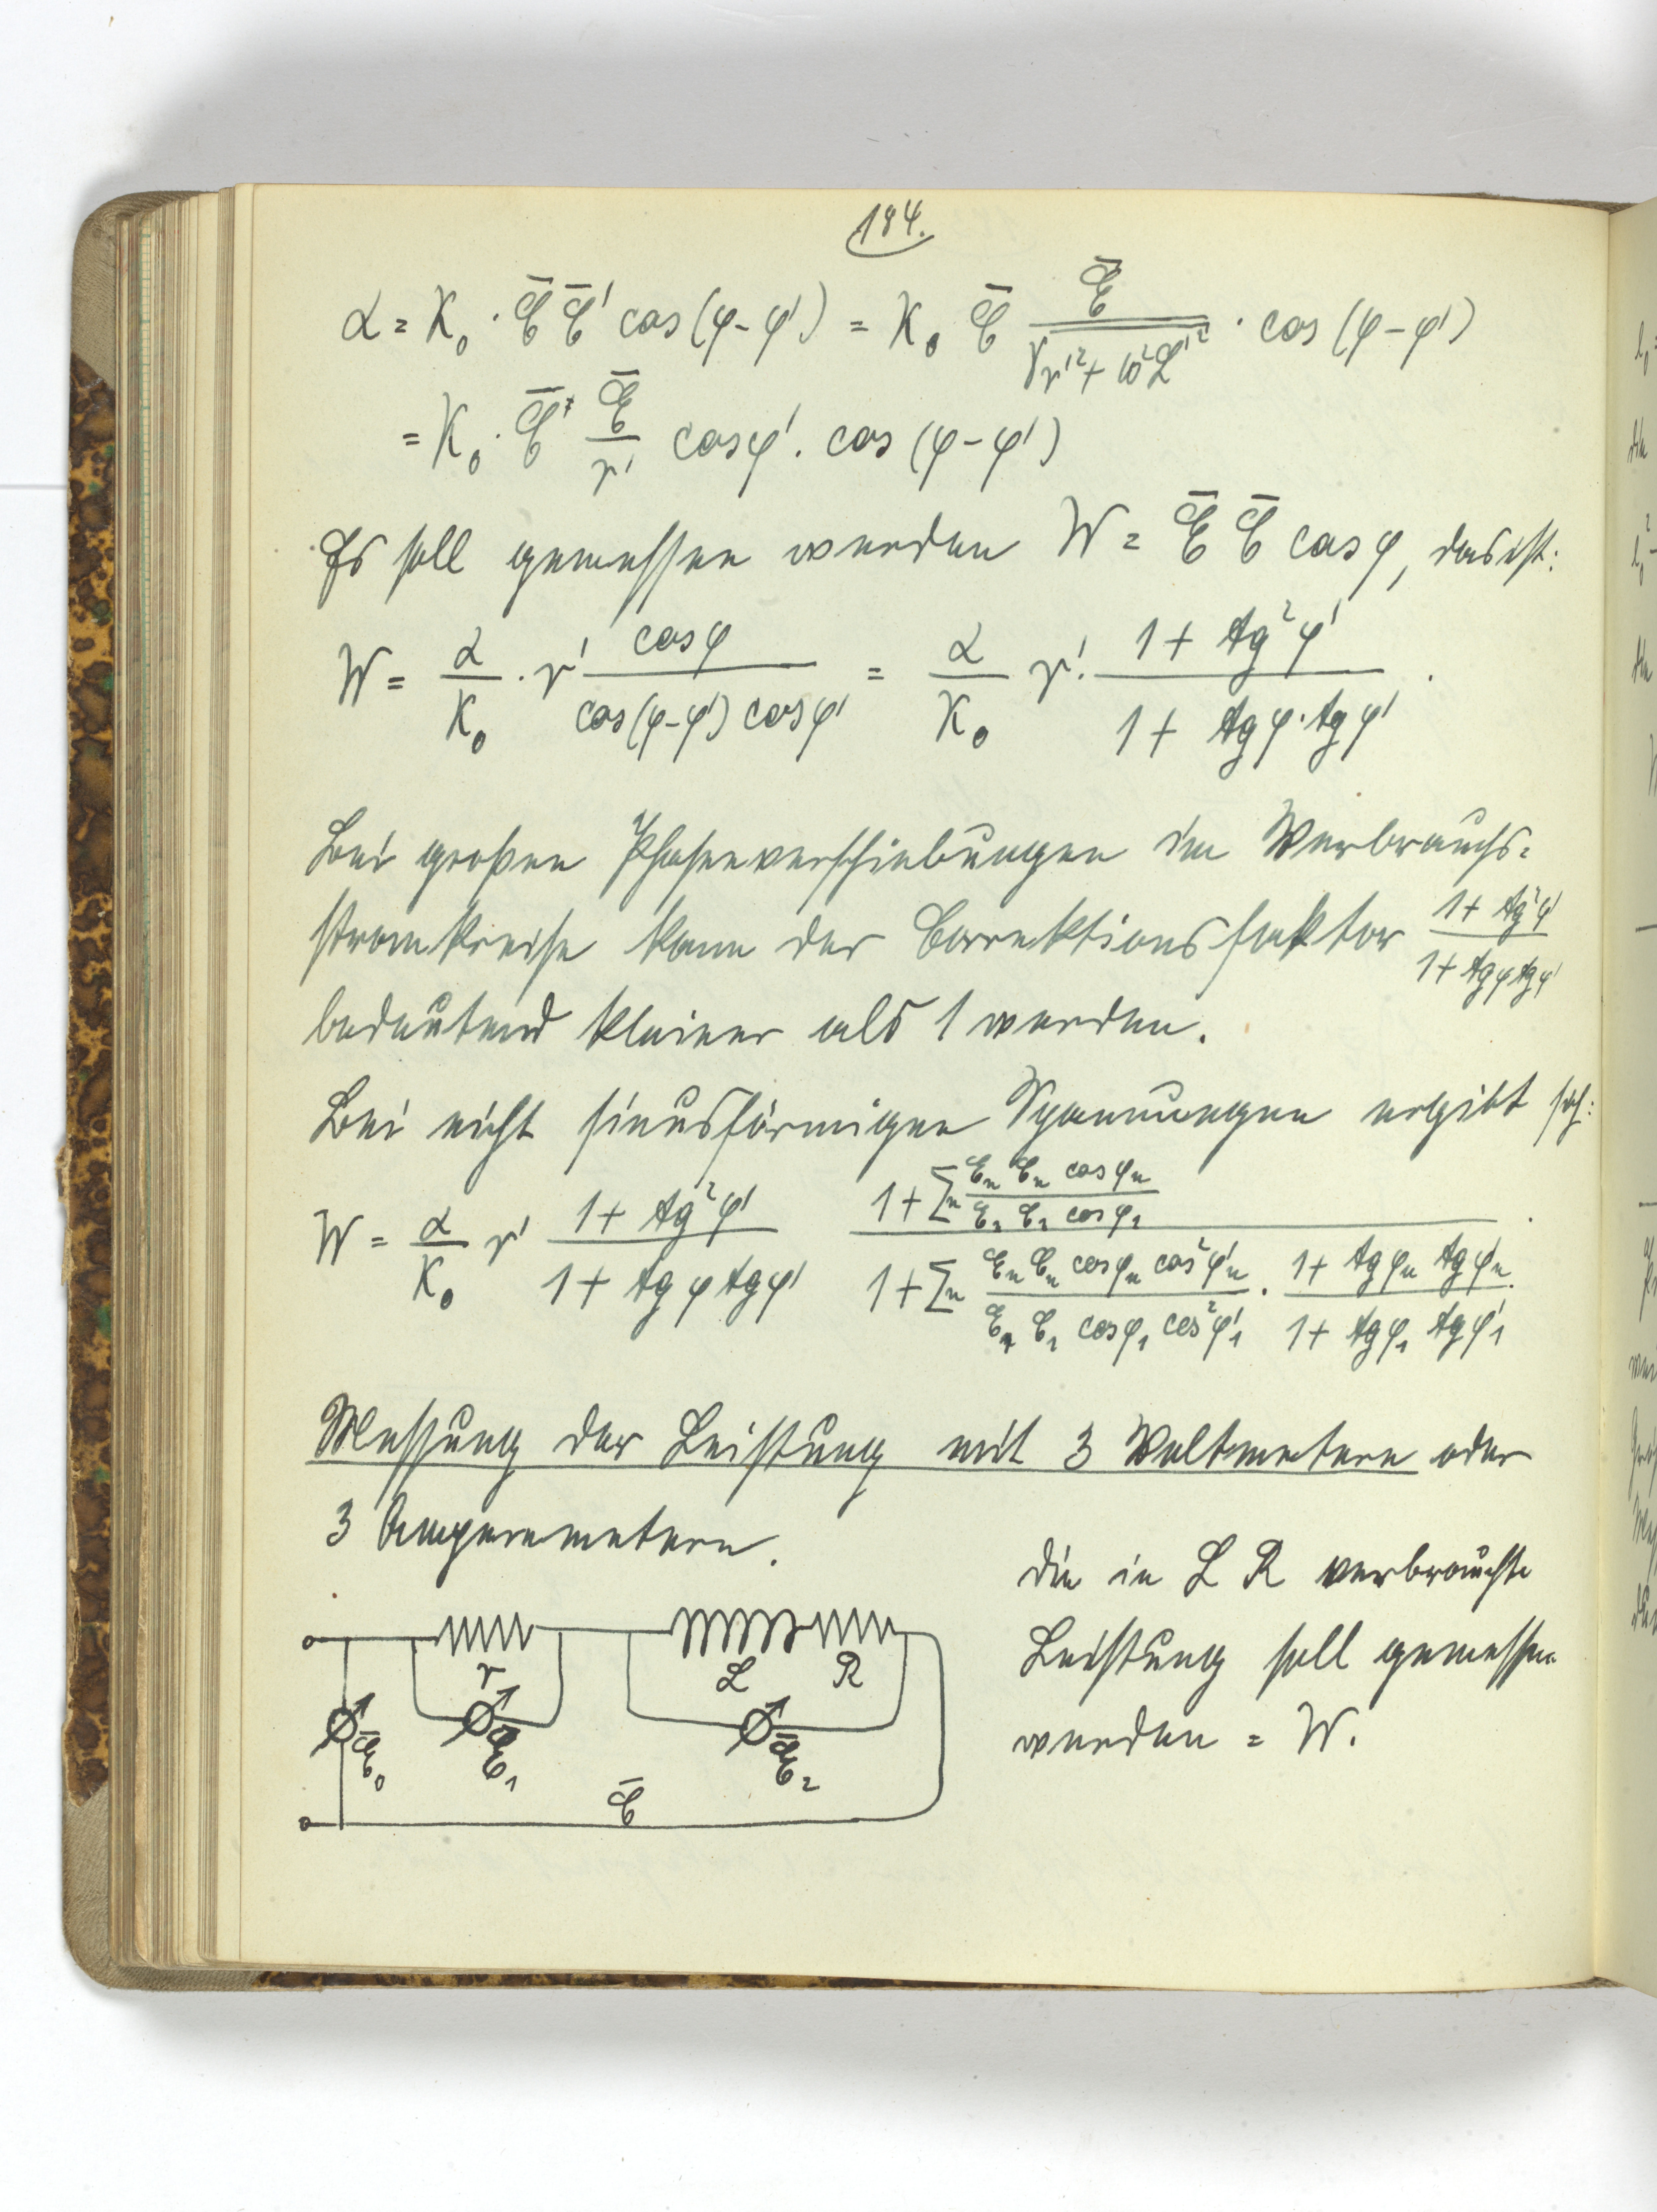 184.
α = K₀ · C̄ C̄' cos (φ-φ') = K₀ C̄ Ē / √(r'² + ω²L'²) · cos (φ-φ')
= K₀ · C̄ Ē / r' cosφ' . cos (φ-φ')
Es soll gemessen werden W = Ē C̄ cos φ, das ist:
W = α / K₀ · r' cosφ / (cos(φ-φ') cosφ') = α / K₀ r' · (1 + tg²φ') / (1 + tgφ · tgφ') .
Bei großen Phasenverschiebungen im Verbrauchs=
stromkreise kann der Correktionsfaktor (1 + tg²φ') / (1 + tgφ tgφ')
bedeutend kleiner als 1 werden.
Bei nicht sinusförmigen Spannungen ergibt sich:
W = α / K₀ r' (1 + tg²φ') / (1 + tg φ tgφ') (1 + Σn Eₙ Cₙ cos φₙ / E₁ C₁ cos φ₁) / (1 + Σn Eₙ Cₙ cosφₙ cos²φ'ₙ / E₁ C₁ cosφ₁ cos²φ'₁ · (1 + tgφₙ tgφ'ₙ) / (1 + tgφ₁ tgφ'₁)) .
Messung der Leistung mit 3 Voltmetern oder
3 Amperemetern.
Die in L R verbrauchte
Leistung soll gemessen
werden = W.
r L R
Ē₀ Ē₁ Ē₂
C̄